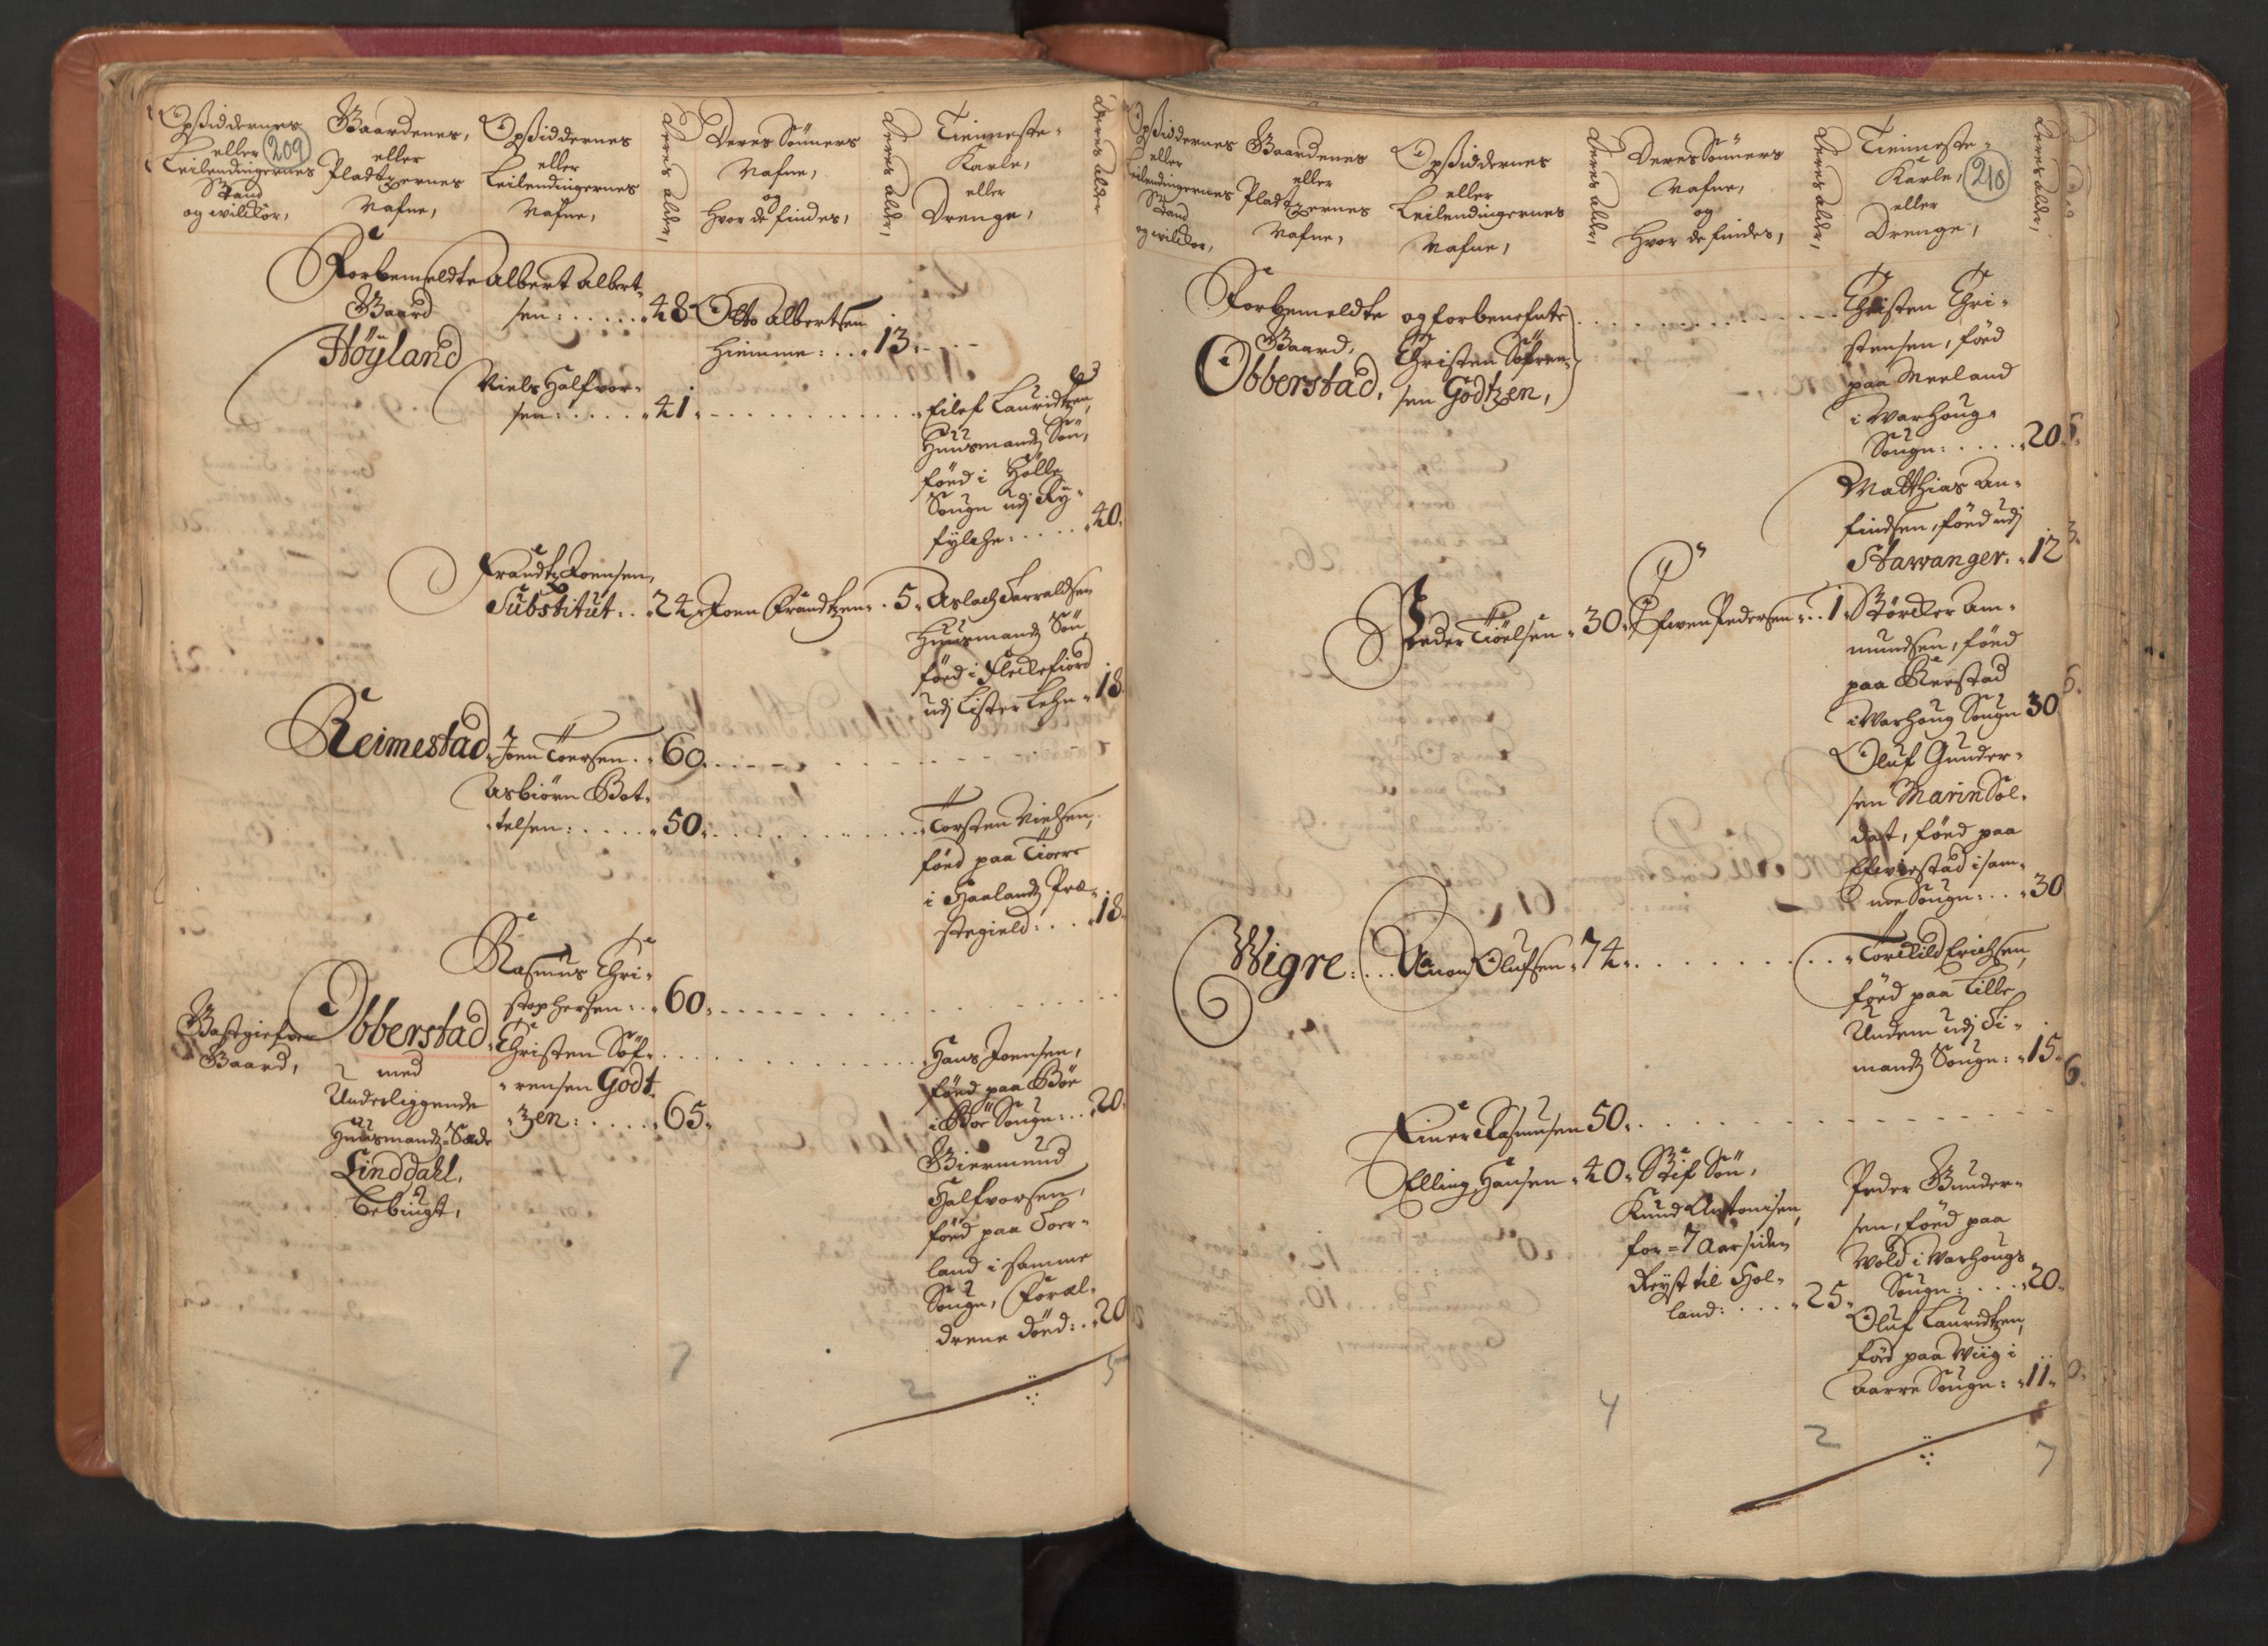 Opsiddernes
eller
Leilendingernes
Stand
og wilckor,
209
Gaardenes,
eller
Pladtzernes
Nafne,
Opsiddernes
eller
Leilendingernes
Nafne,
Deres alder,
Deres Sönners
Nafne,
og
hvor de findes,
Deres alder,
Tienneste-
Karle,
eller
Drenge,
Deres alder
Forbemeldte
Gaard
Höyland
Albert Albert-
sen: . . . . . 48
Otto Albertsen
hiemme: . . . 13.
Niels Halfvor-
sen: . . . . . 41.
Eilef Lauridtzen,
Huusmands Sön,
föed i Holle
Sougn udj Ry-
fylche: . . . . 40.
Frandtz Joensen,
Substitut: . . 24.
Joen Frandtzen. . 5.
Aslach Tarraldsen
Huusmands Sön
föed i Fleckefiord
udj Lister Lehn . 18.
Reimestad.
Joen Toersen. . 60.
Asbiörn Bot-
telsen: . . . . . 50.
Torsten Nielsen,
föed paa Tiöere
i Haalands Præ-
stegield: . . . 18.
Rasmus Chri-
stophersen: . . 60.
Gastgiefver
Gaard,
Obberstad.
med
Underliggende
Huusmands-Sæde
Linddahl.
bebingt,
Christen Söf-
rensen Godt-
zen: . . . . . 65.
Hans Joensen,
föed paa Böe
i Böe Sougn: . . 20.
Giermund
Halfvorsen,
föed paa Toer-
land i samme
Sougn, Foræl-
drene död: . . 20
7
2
5
Opsiddernes
eller
Leilendingernes
Stand
og wilckor,
Gaardenes
eller
Pladtzernes
Nafne,
Opsiddernes
eller
Leilendingernes
Nafne,
Deres alder,
Deres Sönners
Nafne,
og
hvor de findes,
Deres alder,
Tienneste-
Karle,
eller
Drenge,
210
Deres alder,
Forbemeldte
Gaard,
Obberstad.
og forbenefnte
Christen Söfren-
sen Godtzen,
Christen Chri-
stensen, föed
paa Meeland
i Warhoug-
Sougn: . . . . 20.
Matthias An-
findsen, föed udj
Stawanger. . 12
Peder Tiöelsen . 30.
Efwen Pedersen . . 1.
Börcker Am-
mundsen, föed
paa Reestad
i Warhoug Sougn 30
Oluf Gunder-
sen Marin Sol-
dat, föed paa
Efwestad i sam-
me Sougn: . . . 30
Wigre: . . .
Anon Olufsen . 74.
Torckild Erichsen,
föed paa Lille
Undem udj Ti-
mands Sougn: . 15.
Einer Rasmusen 50.
Elling Hansen . 40.
Stif Sön,
Knud Antonisen
for = 7 Aar siden
Reyst til Hol-
land: . . . . 25.
Peder Gunder-
sen, föed paa
Wold i Warhougs
Sougn: . . . 20.
Oluf Lauridtzen,
föed paa Wiig i
Aarre Sougn: . 11.
4
2
7